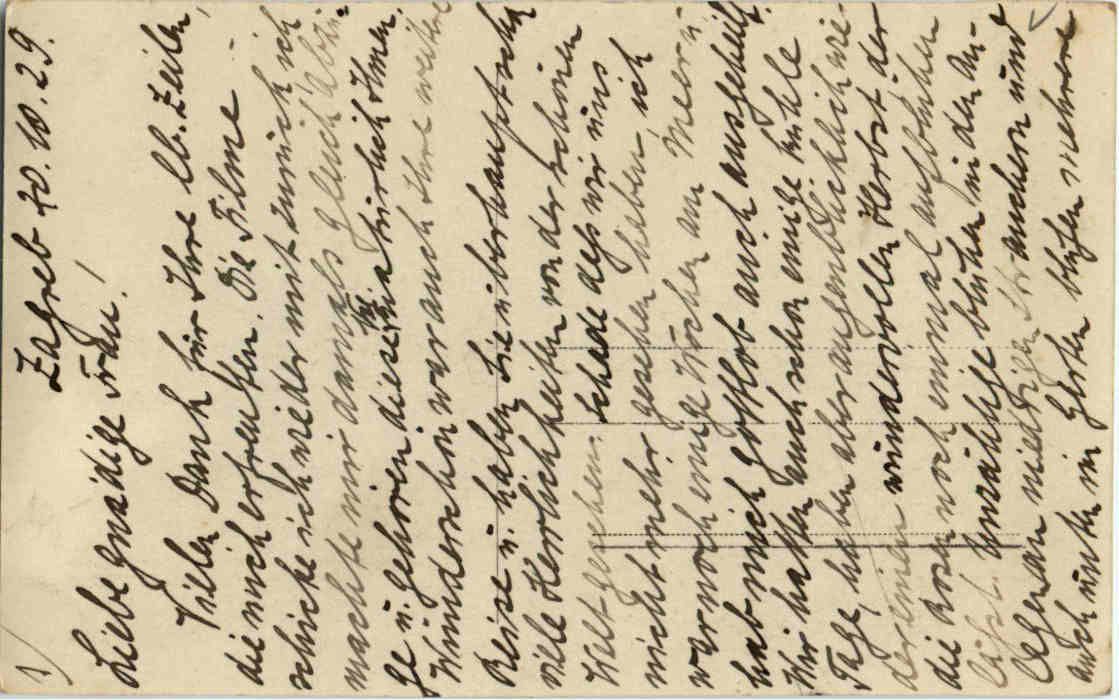 1)
Zagreb 30.10.29.
Liebe gnädige Frau!
Vielen Dank für Ihre lb. Zeilen,
die mich erfreuten. Die Filme
schicke ich wieder mit zurück, ich
machte mir damals gleich
ge u. gehören diese ja natürlich Ihnen.
Wunderschön war auch Ihre weitere
Reise u. haben Sie überhaupt sehr
viele Herrlichkeiten von der schönen
Welt gesehen. Schade dass wir uns
nicht mehr gesehen haben, ich
war noch einige Wochen am Meer u.
hab mich Gottlob auch ausgeheilt.
Wir hatten auch schon einige kühle
Tage, haben aber augenblicklich wie-
der einen wundervollen Herbst der
die Rosen noch einmal aufblühen
lässt. Unzählige blühen in den An-
lagen an niedrigen Sträuchern und
auch unten im Garten blühen mehrere